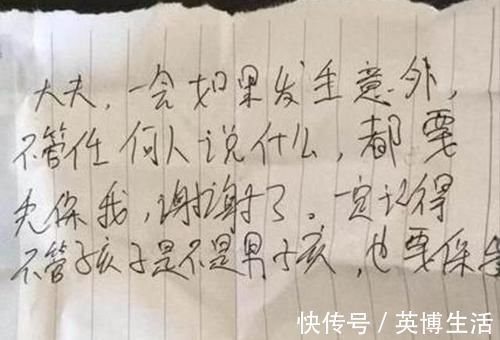 大夫，一会如果发生意外，
不管任何人说什么，都要
先保我，谢谢了。一定记得
不管孩子是不是男孩，也要保
快传号 / 英博生活